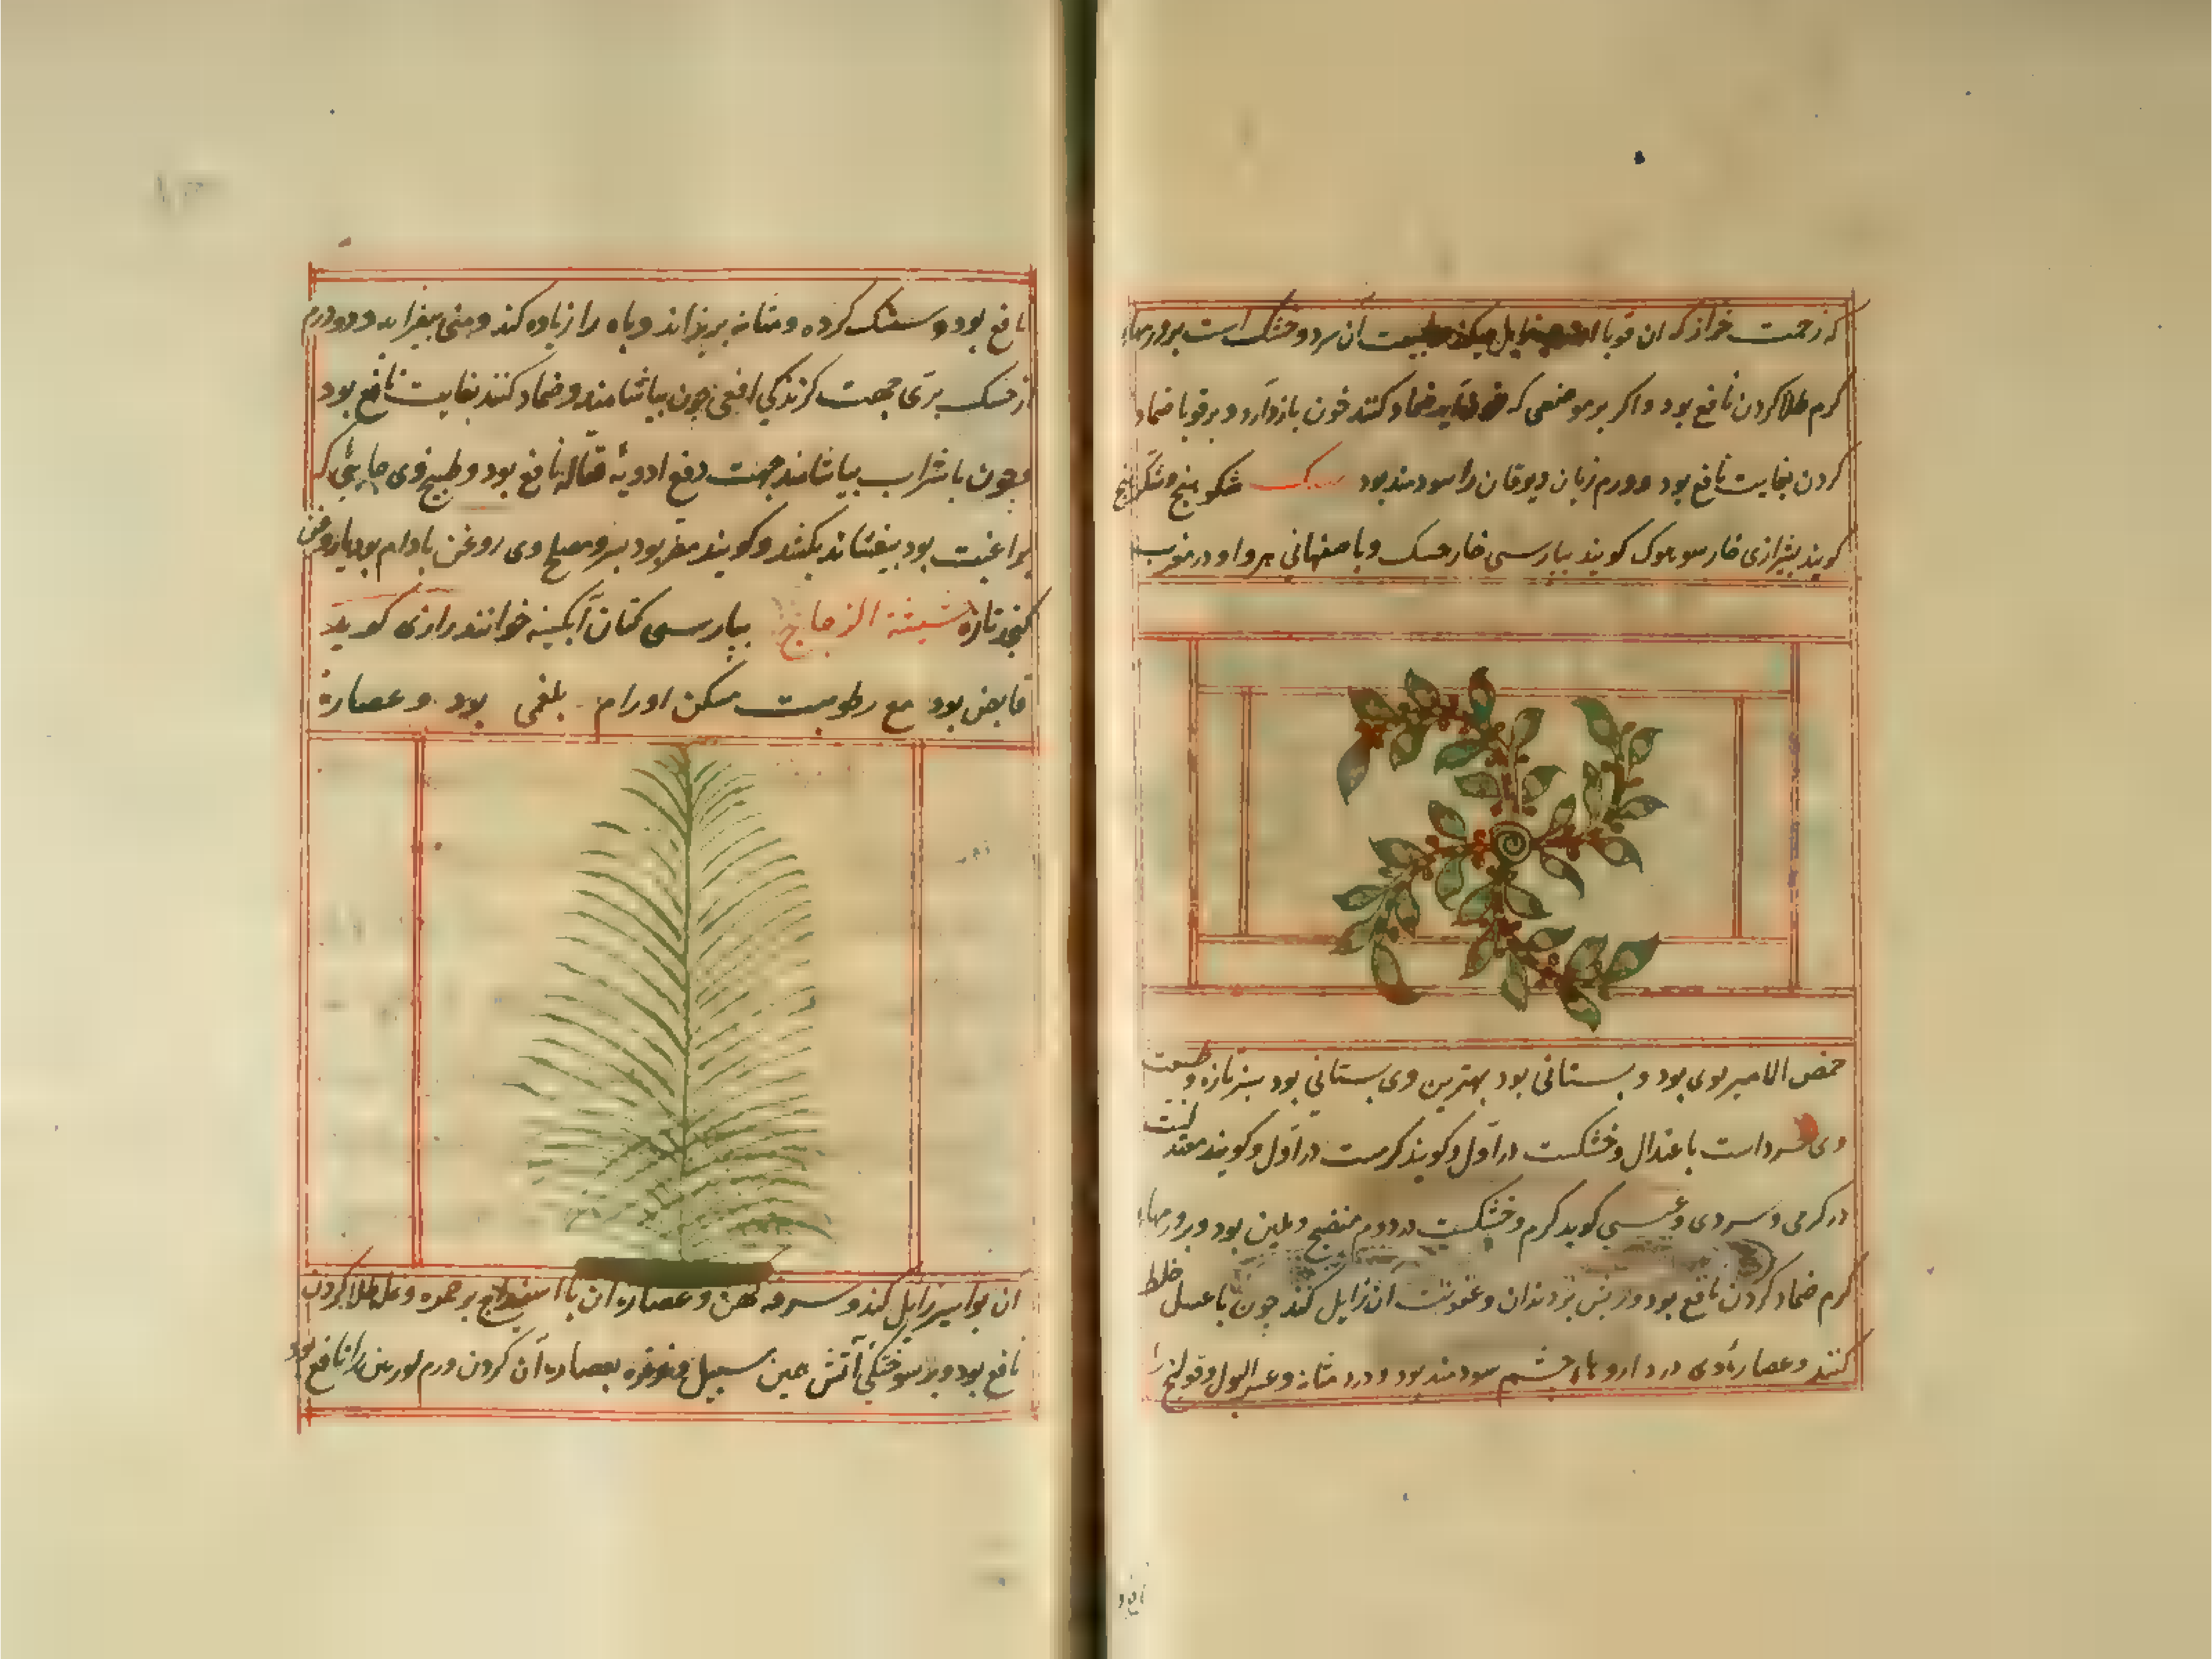 که زحمت خراز که ان قوبا زایل میکند طبیعت آن سرد و خشک است بر ورمهاء
کرم طلا کردن نافع بود و اکر بر موضعی که خون آید ضماد کنند خون بازدارد و بر قوبا ضماد
کردن بغایت نافع بود و ورم زبان و یرقان را سودمند بود حسک شکوهنج و شکرهنج
کویند بشیرازی خار سوهوک کویند بپارسی خارخسک و باصفهانی هروا و در مغرب
حمص الامیر بری بود و بستانی بود بهترین وی بستانی بود سبز تازه و طبیعت
وی سرد است باعتدال و خشکست در اول و کویند کرمست در اول و کویند معتدلست
در کرمی و سردی و عیسی کوید کرم و خشکست در دوم منضج و ملین بود و بر ورمهاء
کرم ضماد کردن نافع بود و ریش بن دندان و عفونت آن زایل کند چون با عسل خلط
کنند و عصاره وی در داروهاء چشم سودمند بود و درد مثانه و عسر البول و قولنج را
نافع بود و سنک کرده و مثانه بریزاند و باه را زیاده کند و منی بیفزاید و دو درم
از خسک بری جهت کزندکی افعی چون بیاشامند و ضماد کنند بغایت نافع بود
و چون با شراب بیاشامند جهت دفع ادویه قتاله نافع بود و طبیخ وی جایی که
براغیث بود بیفشانند بکشد و کویند مضر بود بسر و مصلح وی روغن بادام بود یا روغن
کنجد تازه حشیشة الزجاج بپارسی کتان آبکینه خوانند رازی کوید
قابض بود مع رطوبت مسکن اورام بلغمی بود و عصاره
ان بواسیر زایل کند و سرفه کهن و عصاره ان با اسفیداج بر حمره و نمله طلا کردن
نافع بود و بر سوختکی آتش همین سبیل و غرغره بعصاره آن کردن ورم لوزتین را نافع بود
نافع بود